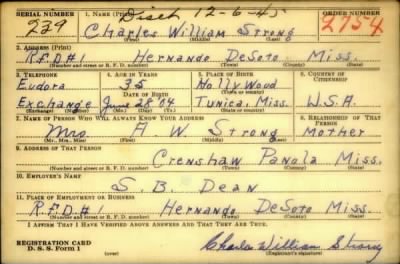 Disch 12-6-45
SERIAL NUMBER 1. NAME (Print) ORDER NUMBER
239 Charles William Strong 2754
(First) (Middle) (Last)
2. ADDRESS (Print)
R.F.D.#1 Hernando DeSoto Miss.
(Number and street or R. F. D. number) (Town) (County) (State)
3. TELEPHONE 4. AGE IN YEARS 5. PLACE OF BIRTH 6. COUNTRY OF CITIZENSHIP
Eudora 35 Hollywood
DATE OF BIRTH (Town or county)
Exchange June 28 '04 Tunica, Miss. U.S.A.
(Exchange) (Number) (Mo.) (Day) (Yr.) (State or country)
7. NAME OF PERSON WHO WILL ALWAYS KNOW YOUR ADDRESS 8. RELATIONSHIP OF THAT PERSON
Mrs. A. W. Strong Mother
(Mr., Mrs., Miss) (First) (Middle) (Last)
9. ADDRESS OF THAT PERSON
Crenshaw Panola Miss.
(Number and street or R. F. D. number) (Town) (County) (State)
10. EMPLOYER'S NAME
S. B. Dean
11. PLACE OF EMPLOYMENT OR BUSINESS
R.F.D.#1 Hernando DeSoto Miss.
(Number and street or R. F. D. number) (Town) (County) (State)
I AFFIRM THAT I HAVE VERIFIED ABOVE ANSWERS AND THAT THEY ARE TRUE.
REGISTRATION CARD
D. S. S. Form 1 Charles William Strong
(Registrant's signature)